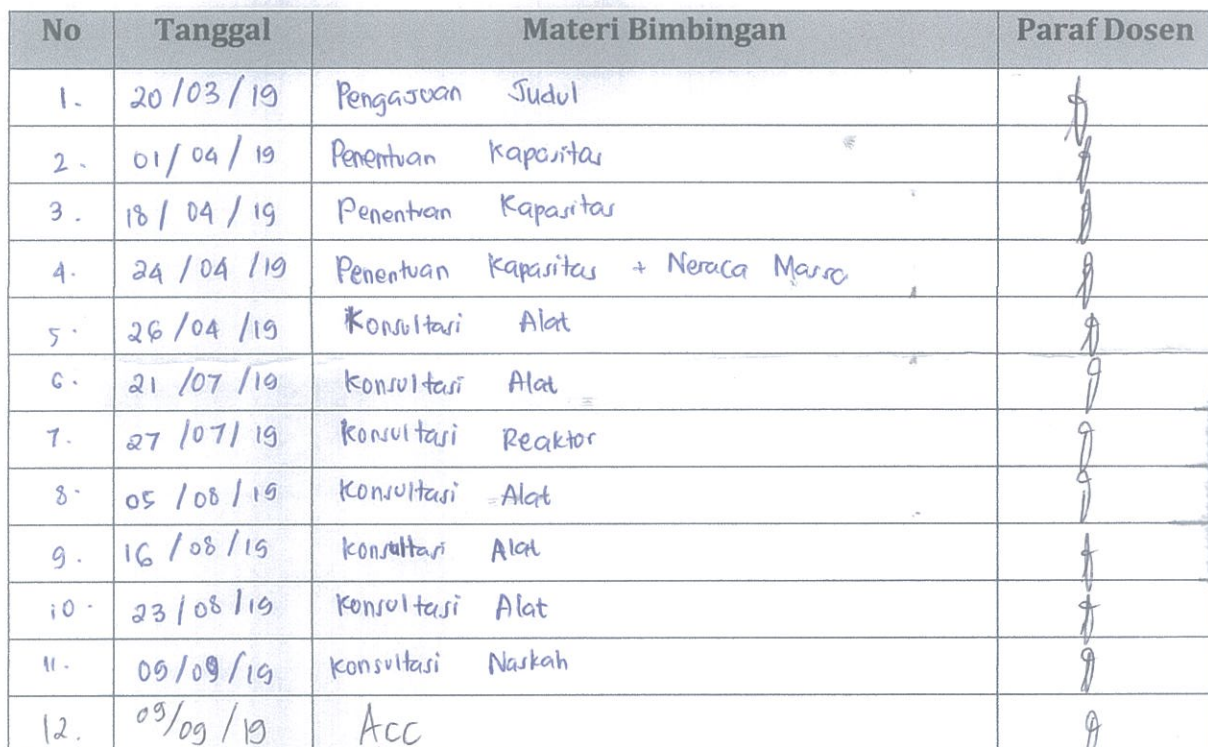 No Tanggal Materi Bimbingan Paraf Dosen
1. 20/03/19 Pengajuan Judul
2. 01/04/19 Penentuan Kapasitas
3. 18/04/19 Penentuan Kapasitas
4. 24/04/19 Penentuan Kapasitas + Neraca Massa
5. 26/04/19 Konsultasi Alat
6. 21/07/19 Konsultasi Alat
7. 27/07/19 Konsultasi Reaktor
8. 05/08/19 Konsultasi Alat
9. 16/08/19 Konsultasi Alat
10. 23/08/19 Konsultasi Alat
11. 09/09/19 Konsultasi Naskah
12. 09/09/19 Acc